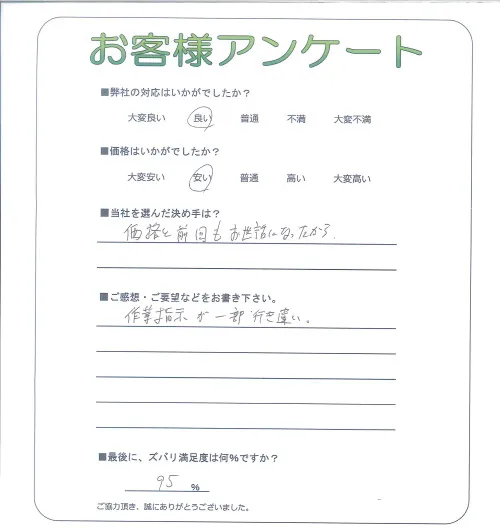 お客様アンケート
■弊社の対応はいかがでしたか？
大変良い 良い 普通 不満 大変不満
■価格はいかがでしたか？
大変安い 安い 普通 高い 大変高い
■当社を選んだ決め手は？
価格と前回もお世話になったから.
■ご感想・ご要望などをお書き下さい。
作業指示が一部行き違い。
■最後に、ズバリ満足度は何%ですか？
95 %
ご協力頂き、誠にありがとうございました。